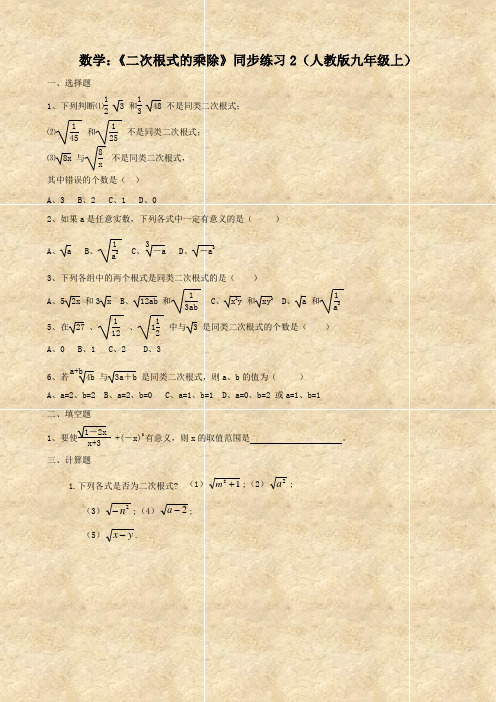 数学：《二次根式的乘除》同步练习2（人教版九年级上）
一、选择题
1、下列判断⑴1/2 √3 和1/3 √48 不是同类二次根式；
⑵√(1/45) 和√(1/25) 不是同类二次根式；
⑶√8x 与√(8/x) 不是同类二次根式，
其中错误的个数是（ ）
A、3 B、2 C、1 D、0
2、如果a是任意实数，下列各式中一定有意义的是（ ）
A、√a B、√(1/a²) C、∛-a D、√-a²
3、下列各组中的两个根式是同类二次根式的是（ ）
A、5√2x 和3√x B、√12ab 和√(1/3ab) C、√x²y 和√xy² D、√a 和√(1/a²)
5、在√27 、√(1/12) 、√(1 1/2) 中与√3 是同类二次根式的个数是（ ）
A、0 B、1 C、2 D、3
6、若 a+b√4b 与√3a＋b 是同类二次根式，则a、b的值为（ ）
A、a=2、b=2 B、a=2、b=0 C、a=1、b=1 D、a=0、b=2 或a=1、b=1
二、填空题
1、要使√1－2x/x+3 +(－x)⁰有意义，则x的取值范围是 。
三、计算题
1.下列各式是否为二次根式? （1）√m²+1；（2）√a²；
（3）√-n²；（4）√a-2；
（5）√x-y.